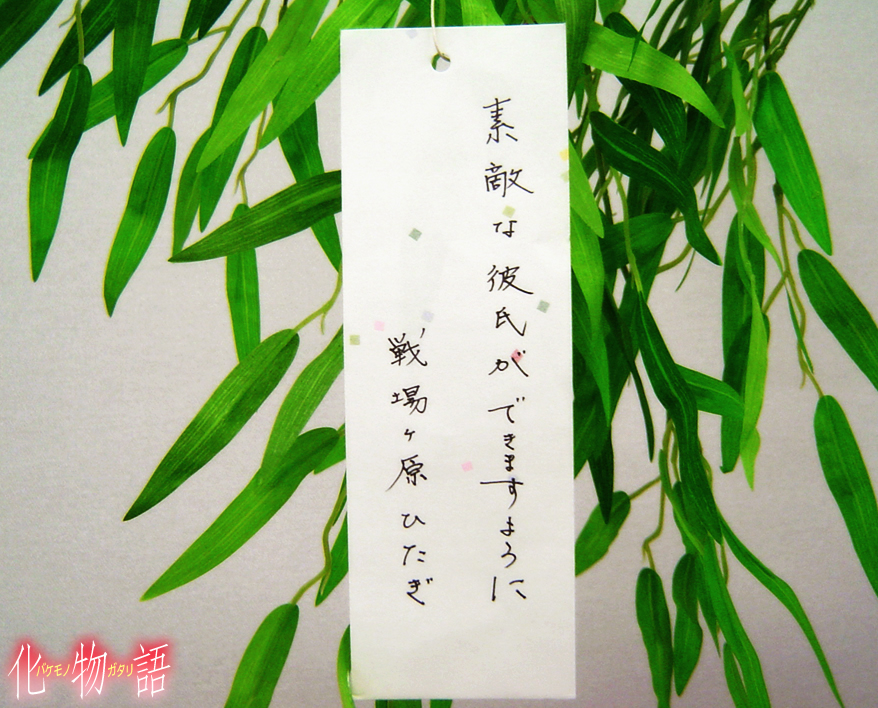 素敵な彼氏ができますように
戦場ヶ原ひたぎ
化物語
バケモノガタリ